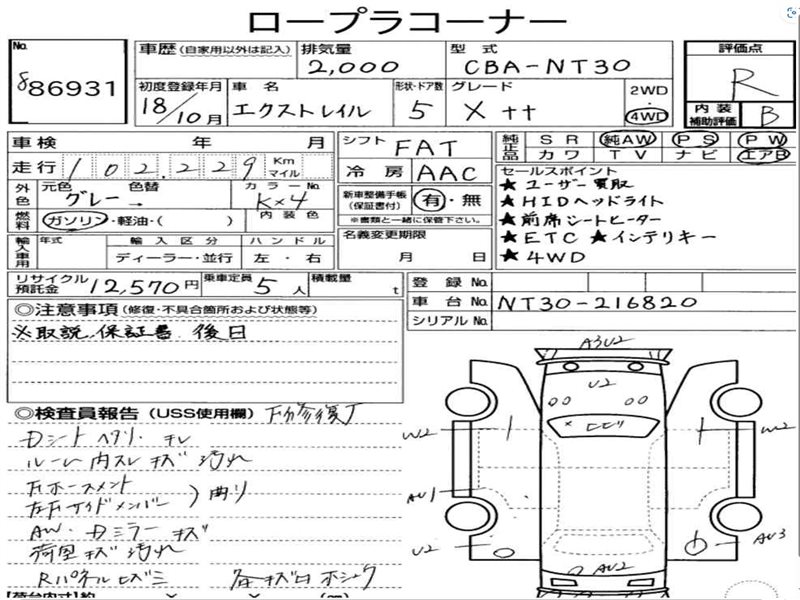 ロープラコーナー
No. 86931
車歴 (自家用以外は記入) 排気量 2,000 型式 CBA-NT30 評価点 R
初度登録年月 18/10月 車名 エクストレイル 形状・ドア数 5 グレード X tt 2WD・4WD 内装補助評価 B
車検 年 月 シフト FAT 純正品 SR 純AW PS PW
走行 102,229 Km マイル 冷房 AAC カワ TV ナビ エアB
外色 元色 グレー 色替 カラーNo. K×4 新車整備手帳(保証書付) 有・無 ※書類と一緒に保管下さい。
セールスポイント
★ユーザー買取
★HIDヘッドライト
★前席シートヒーター
★ETC ★インテリキー
★4WD
燃料 ガソリン・軽油・( ) 内装色
名義変更期限 月 日
輸入車用 年式 輸入区分 ディーラー・並行 ハンドル 左・右
リサイクル預託金 12,570円 乗車定員 5人 積載量 t
登録No.
車台No. NT30-216820
シリアルNo.
◎注意事項 (修復・不具合箇所および状態等)
※取説、保証書 後日
◎検査員報告 (USS使用欄)
ルーム内スレ キズ 汚れ
曲り
AW・Dミラー キズ
荷室 キズ 汚れ
Rパネル ヒズミ
A3 U2
U2
W2
W2
AU1
U2
AU3
AU2